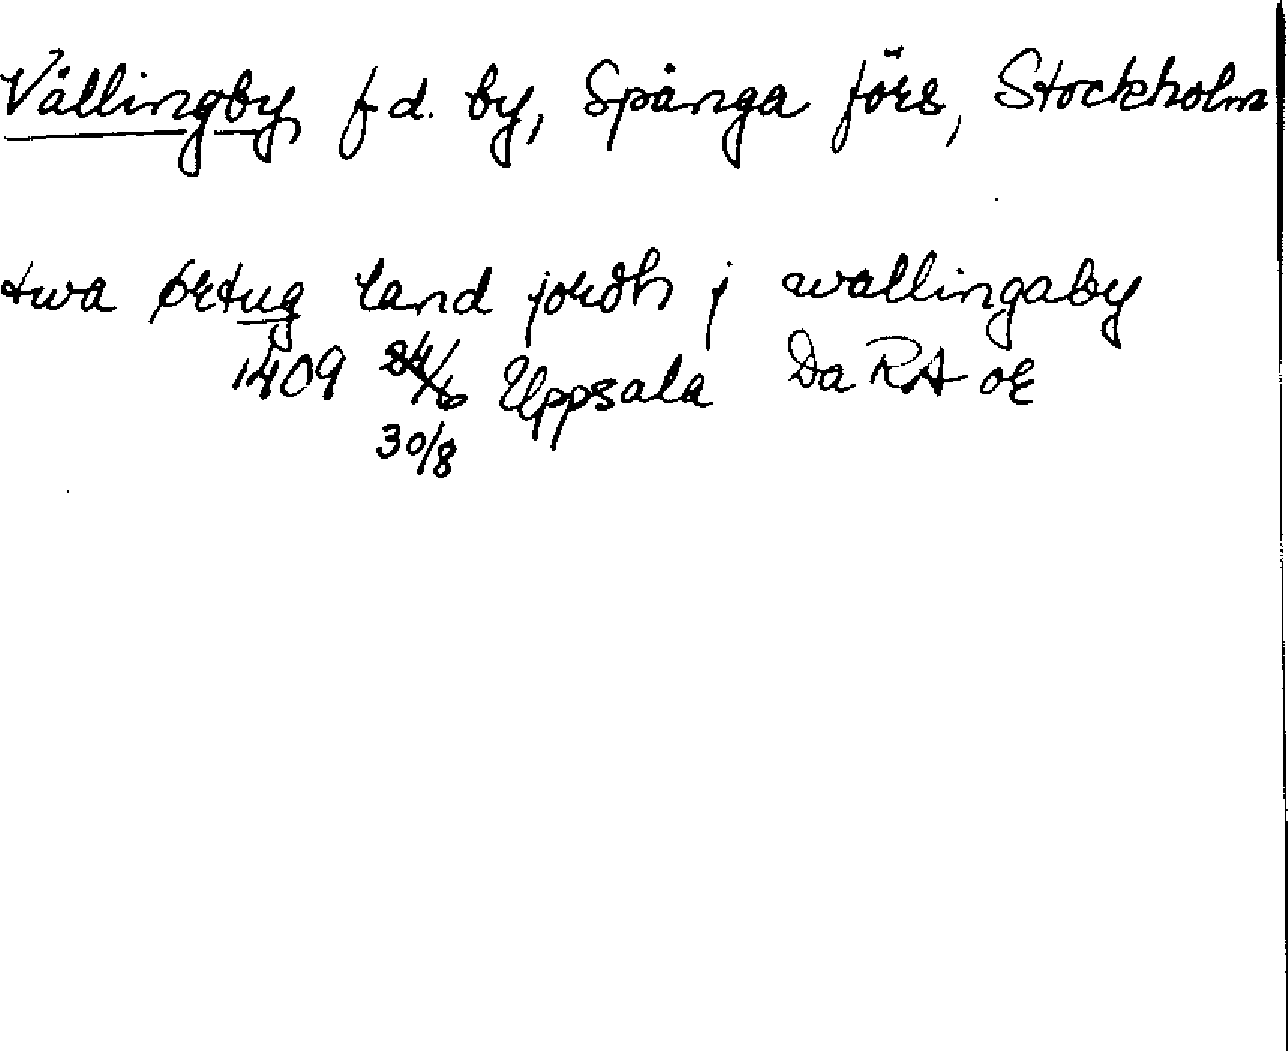 Vällingby f d. by, Spånga förs, Stockholm
twa ørtug land jordh j wallingaby
1409 24/6 Uppsala Da RA or
30/8